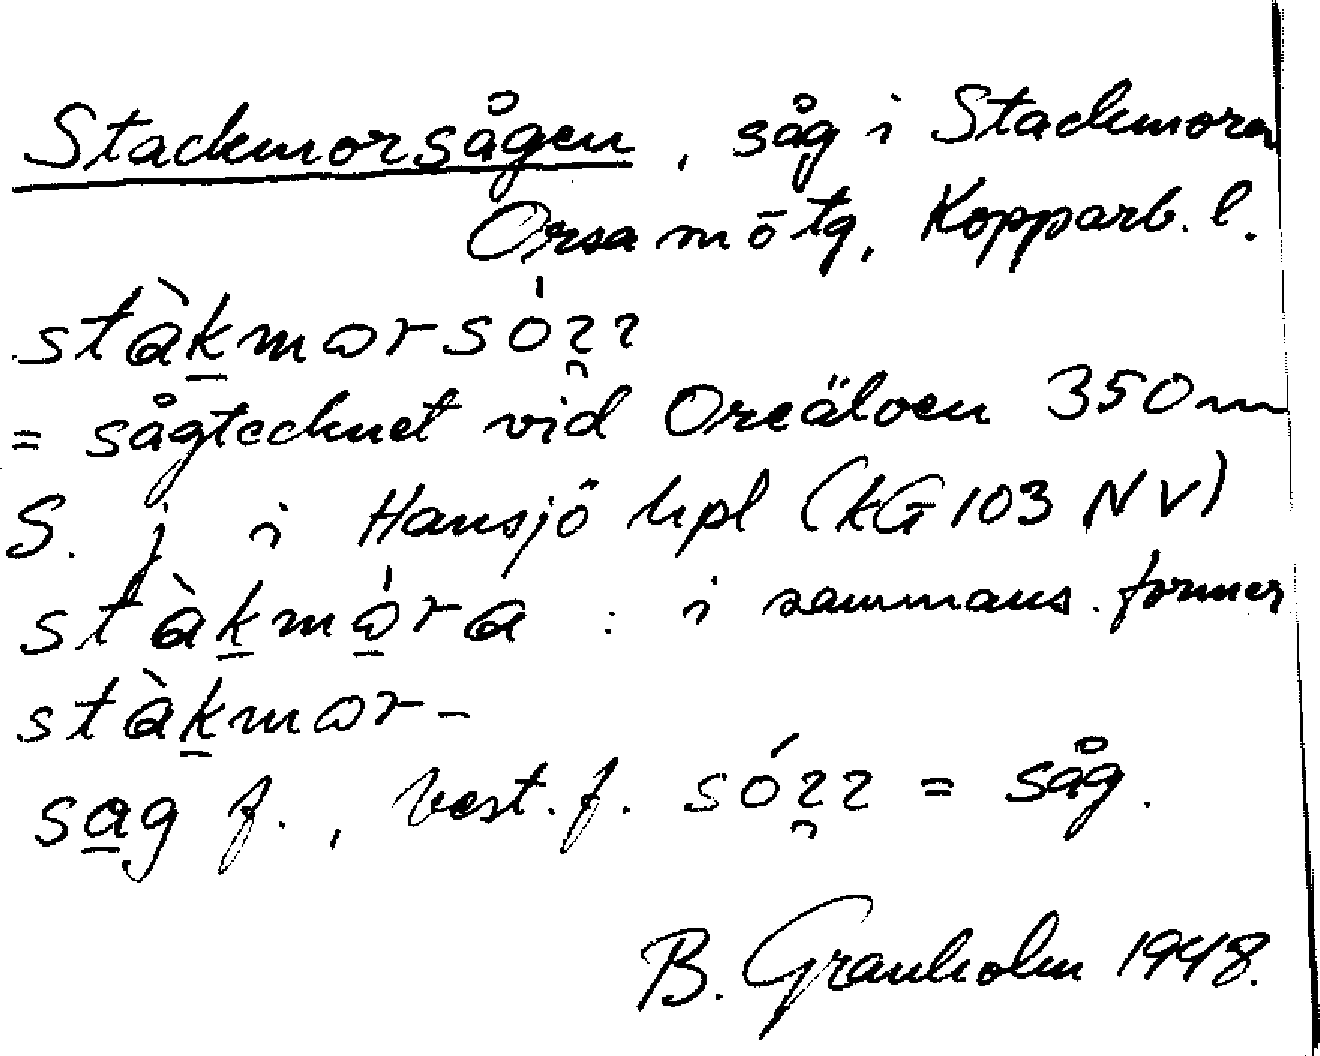 Stackmorsågen, såg i Stackmora
Orsa m ō tg, Kopparb. l.
stàk̠mɷrsóɿɿ
= sågtecknet vid Oreälven 350 m
S. j i Hansjö hpl (kG 103 NV)
stàk̠mɷ̠́ra : i sammans. former
stàk̠mɷr-
sa̠g f., best. f. sóɿɿ = såg.
B. Granholm 1948.